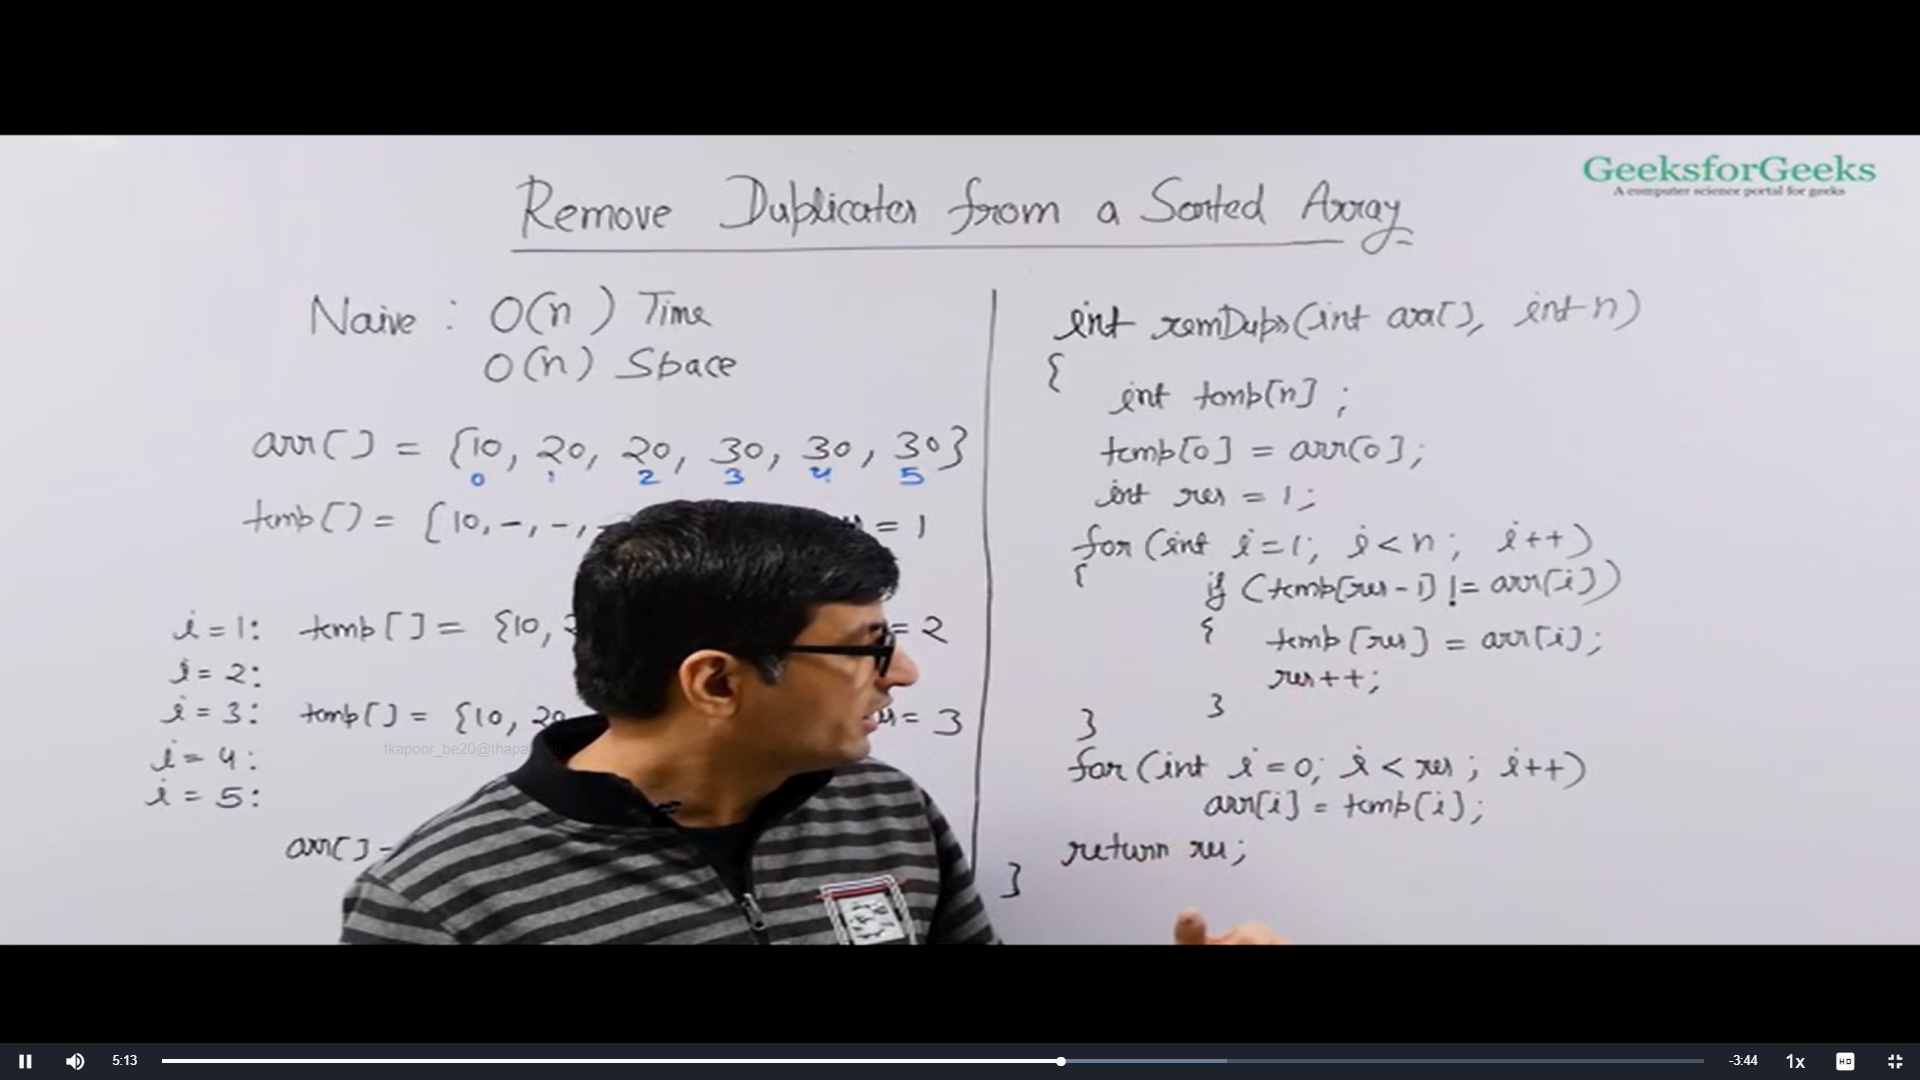 GeeksforGeeks
A computer science portal for geeks
Remove Duplicates from a Sorted Array
Naive : O(n) Time
O(n) Space
arr[] = {10, 20, 20, 30, 30, 30}
0 1 2 3 4 5
temp[] = {10, -, -, = 1
i = 1: temp[] = {10, = 2
i = 2:
i = 3: temp[] = {10, 20 = 3
i = 4:
i = 5:
arr[]
int remDups(int arr[], int n)
{
int temp[n] ;
temp[0] = arr[0];
int res = 1;
for (int i=1; i<n; i++)
{
if (temp[res-1] != arr[i])
{
temp[res] = arr[i];
res++;
}
}
for (int i=0; i<res; i++)
arr[i] = temp[i];
return res;
}
5:13
-3:44
1x
HD